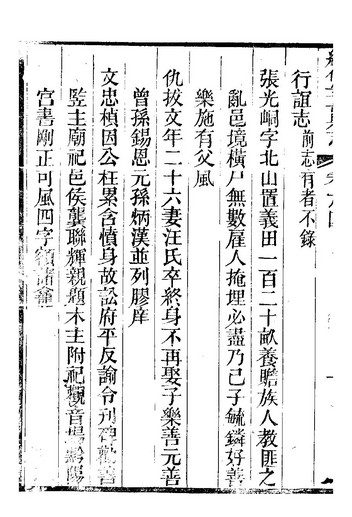 行誼志 前志有者不錄
張光峒字北山置義田一百二十畝養贍族人教匪之
亂邑境橫尸無數雇人掩埋必盡乃已子毓鏻好善
樂施有父風
仇拔文年二十六妻汪氏卒終身不再娶子樂善元善
曾孫錫恩元孫炳漢並列膠庠
文忠楨因公枉累含憤身故訟府平反諭令刊碑
監主廟祀邑侯龔聯輝親題木主附祀觀音場
宮書剛正可風四字額諸龕